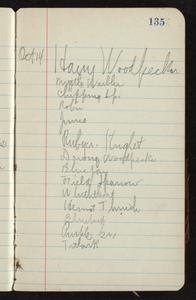 135
Oct 14
Hairy Woodpecker
Myrtle Warbler
Chipping Sp.
Robin
Junco
Ruby cr. Kinglet
Downy Woodpecker
Blue Jay
Field Sparrow
W. throat
Hermit Thrush
Bluebird
Purple